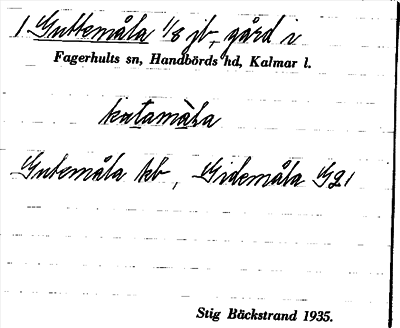 1 Guttemåla 1/8 jb, gård i
Fagerhults sn, Handbörds hd, Kalmar l.
Gutemåla kb, Gidemåla G21
Stig Bäckstrand 1935.